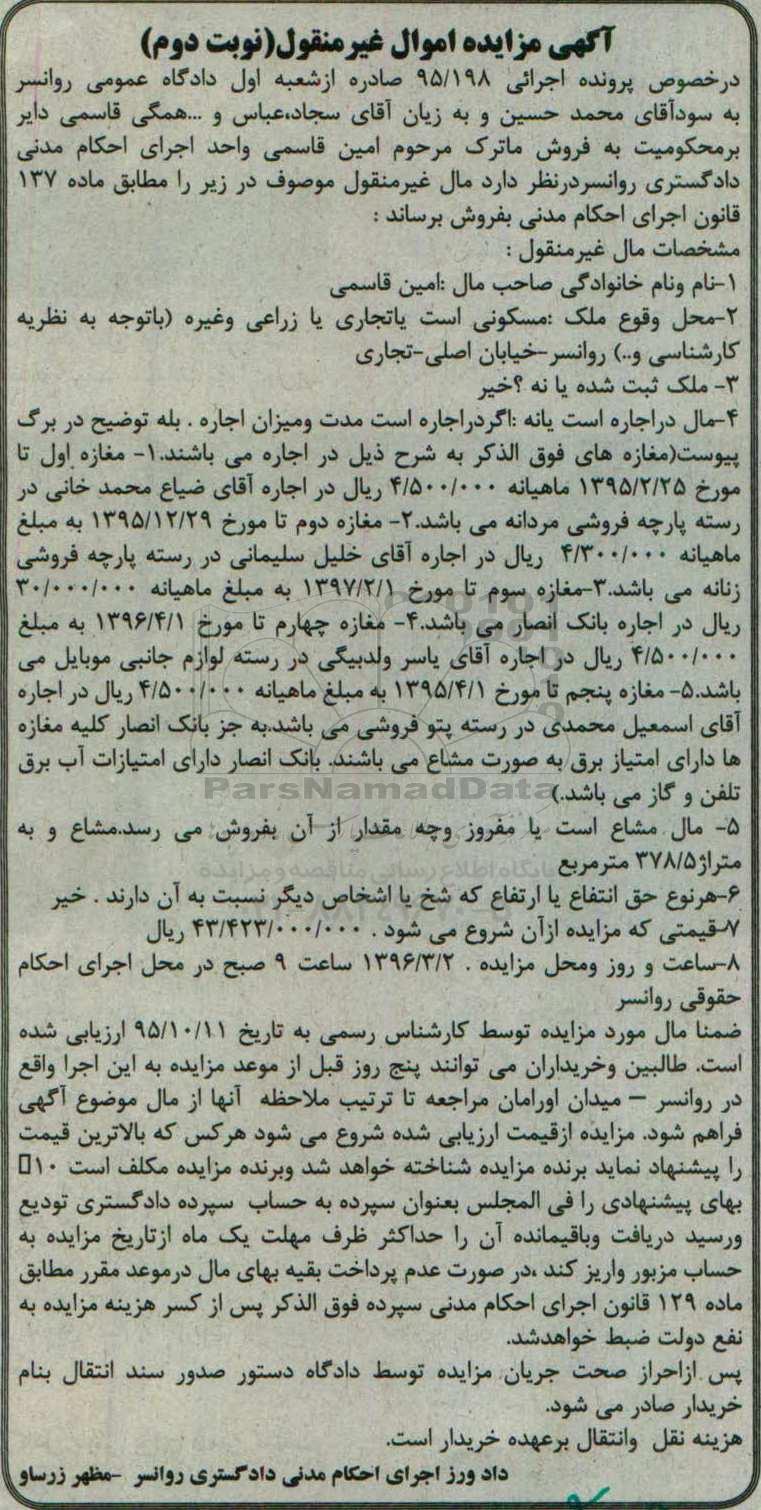 آگهی مزایده اموال غیرمنقول(نوبت دوم)
درخصوص پرونده اجرائی ۹۵/۱۹۸ صادره ازشعبه اول دادگاه عمومی روانسر
به سودآقای محمد حسین و به زیان آقای سجاد،عباس و ...همگی قاسمی دایر
برمحکومیت به فروش ماترک مرحوم امین قاسمی واحد اجرای احکام مدنی
دادگستری روانسردرنظر دارد مال غیرمنقول موصوف در زیر را مطابق ماده ۱۳۷
قانون اجرای احکام مدنی بفروش برساند :
مشخصات مال غیرمنقول :
۱-نام ونام خانوادگی صاحب مال :امین قاسمی
۲-محل وقوع ملک :مسکونی است یاتجاری یا زراعی وغیره (باتوجه به نظریه
کارشناسی و..) روانسر-خیابان اصلی-تجاری
۳- ملک ثبت شده یا نه ؟خیر
۴-مال دراجاره است یانه :اگردراجاره است مدت ومیزان اجاره . بله توضیح در برگ
پیوست(مغازه های فوق الذکر به شرح ذیل در اجاره می باشند.۱- مغازه اول تا
مورخ ۱۳۹۵/۲/۲۵ ماهیانه ۴/۵۰۰/۰۰۰ ریال در اجاره آقای ضیاع محمد خانی در
رسته پارچه فروشی مردانه می باشد.۲- مغازه دوم تا مورخ ۱۳۹۵/۱۲/۲۹ به مبلغ
ماهیانه ۴/۳۰۰/۰۰۰ ریال در اجاره آقای خلیل سلیمانی در رسته پارچه فروشی
زنانه می باشد.۳-مغازه سوم تا مورخ ۱۳۹۷/۲/۱ به مبلغ ماهیانه ۳۰/۰۰۰/۰۰۰
ریال در اجاره بانک انصار می باشد.۴- مغازه چهارم تا مورخ ۱۳۹۶/۴/۱ به مبلغ
۴/۵۰۰/۰۰۰ ریال در اجاره آقای یاسر ولدبیگی در رسته لوازم جانبی موبایل می
باشد.۵- مغازه پنجم تا مورخ ۱۳۹۵/۴/۱ به مبلغ ماهیانه ۴/۵۰۰/۰۰۰ ریال در اجاره
آقای اسمعیل محمدی در رسته پتو فروشی می باشد.به جز بانک انصار کلیه مغازه
ها دارای امتیاز برق به صورت مشاع می باشند. بانک انصار دارای امتیازات آب برق
تلفن و گاز می باشد.)
ParsNamadData
۵- مال مشاع است یا مفروز وچه مقدار از آن بفروش می رسد.مشاع و به
متراژ۳۷۸/۵ مترمربع
پایگاه اطلاع رسانی مناقصه و مزایده
۶-هرنوع حق انتفاع یا ارتفاع که شخ یا اشخاص دیگر نسبت به آن دارند . خیر
۷-قیمتی که مزایده ازآن شروع می شود . ۴۳/۴۲۳/۰۰۰/۰۰۰ ریال
۸-ساعت و روز ومحل مزایده . ۱۳۹۶/۳/۲ ساعت ۹ صبح در محل اجرای احکام
حقوقی روانسر
ضمنا مال مورد مزایده توسط کارشناس رسمی به تاریخ ۹۵/۱۰/۱۱ ارزیابی شده
است. طالبین وخریداران می توانند پنج روز قبل از موعد مزایده به این اجرا واقع
در روانسر – میدان اورامان مراجعه تا ترتیب ملاحظه آنها از مال موضوع آگهی
فراهم شود. مزایده ازقیمت ارزیابی شده شروع می شود هرکس که بالاترین قیمت
را پیشنهاد نماید برنده مزایده شناخته خواهد شد وبرنده مزایده مکلف است ۱۰□
بهای پیشنهادی را فی المجلس بعنوان سپرده به حساب سپرده دادگستری تودیع
ورسید دریافت وباقیمانده آن را حداکثر ظرف مهلت یک ماه ازتاریخ مزایده به
حساب مزبور واریز کند ،در صورت عدم پرداخت بقیه بهای مال درموعد مقرر مطابق
ماده ۱۲۹ قانون اجرای احکام مدنی سپرده فوق الذکر پس از کسر هزینه مزایده به
نفع دولت ضبط خواهدشد.
پس ازاحراز صحت جریان مزایده توسط دادگاه دستور صدور سند انتقال بنام
خریدار صادر می شود.
هزینه نقل وانتقال برعهده خریدار است.
داد ورز اجرای احکام مدنی دادگستری روانسر -مظهر زرساو